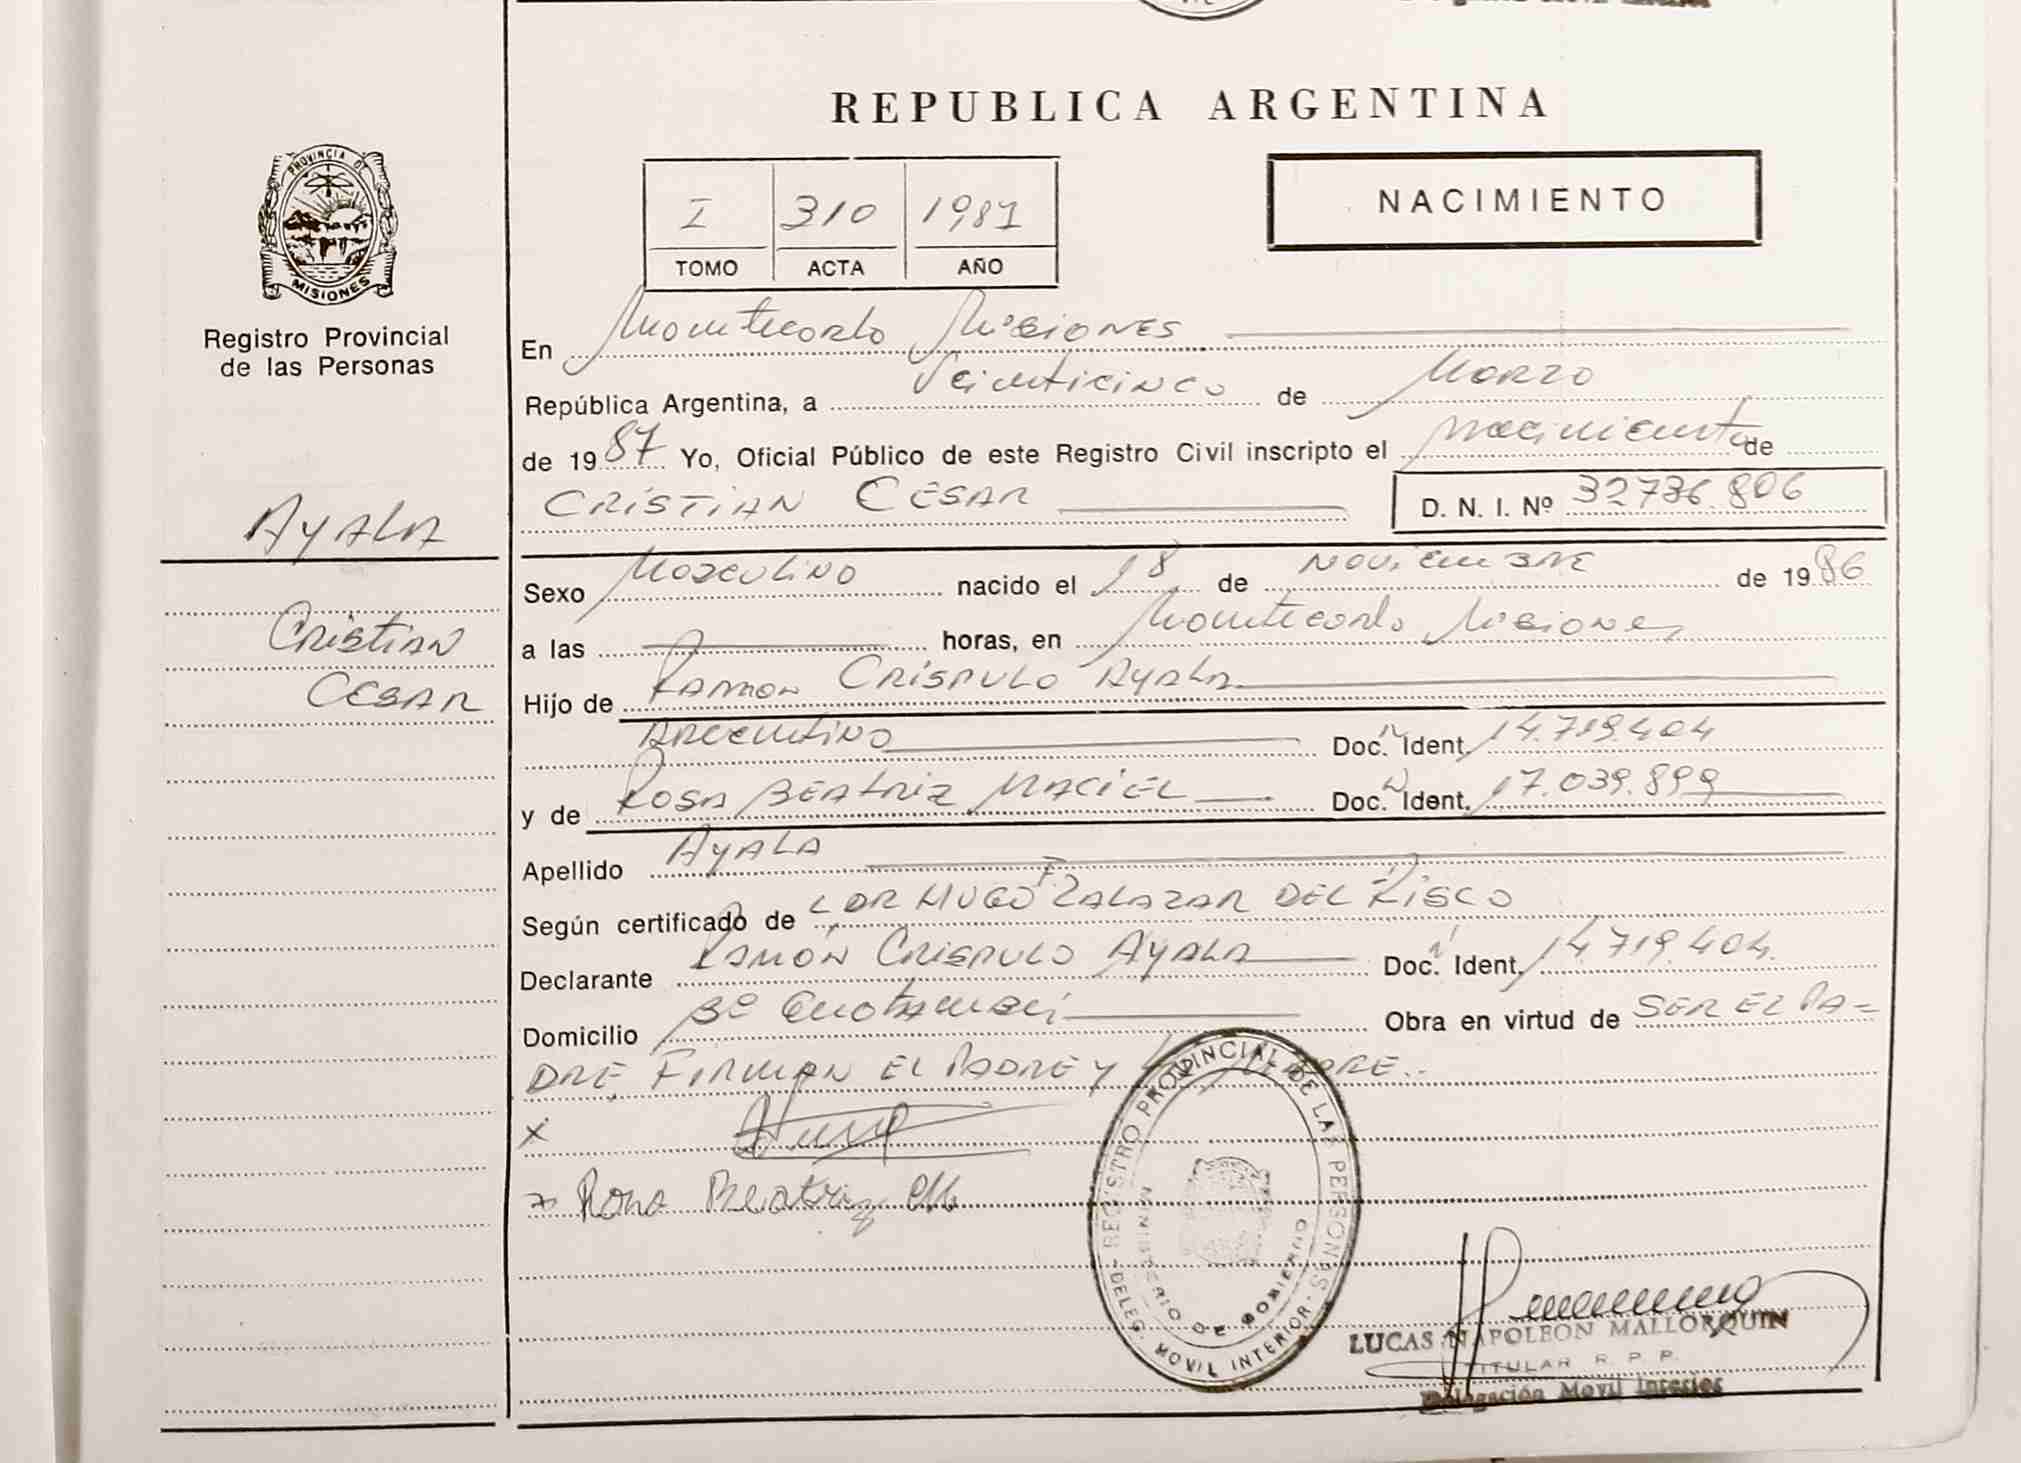 REPUBLICA ARGENTINA
PROVINCIA DE
MISIONES
Registro Provincial
de las Personas
I 310 1987
TOMO ACTA AÑO
NACIMIENTO
En Montecarlo Misiones
República Argentina, a Veinticinco de Marzo
de 1987 Yo, Oficial Público de este Registro Civil inscripto el nacimiento de
CRISTIAN CESAR D. N. I. Nº 32736.806
AYALA
Cristian
CESAR
Sexo Masculino nacido el 18 de NOVIEMBRE de 1986
a las horas, en Montecarlo Misiones
Hijo de RAMON CRISPULO AYALA
ARGENTINO Doc. Ident. 14.719.404
y de ROSA BEATRIZ MACIEL Doc. Ident. 17.039.899
Apellido AYALA
Según certificado de HUGO SALAZAR DEL RISCO
Declarante RAMÓN CRISPULO AYALA Doc. Ident. 14.719.404
Domicilio Bº Obra en virtud de SER EL PA-
DRE, FIRMAN EL PADRE Y LA MADRE..
x
x Rosa Beatriz
REGISTRO PROVINCIAL DE LAS PERSONAS
MINISTERIO DE GOBIERNO
DELEG. MOVIL INTERIOR
LUCAS NAPOLEON MALLORQUIN
TITULAR R. P. P.
Delegación Movil Interior